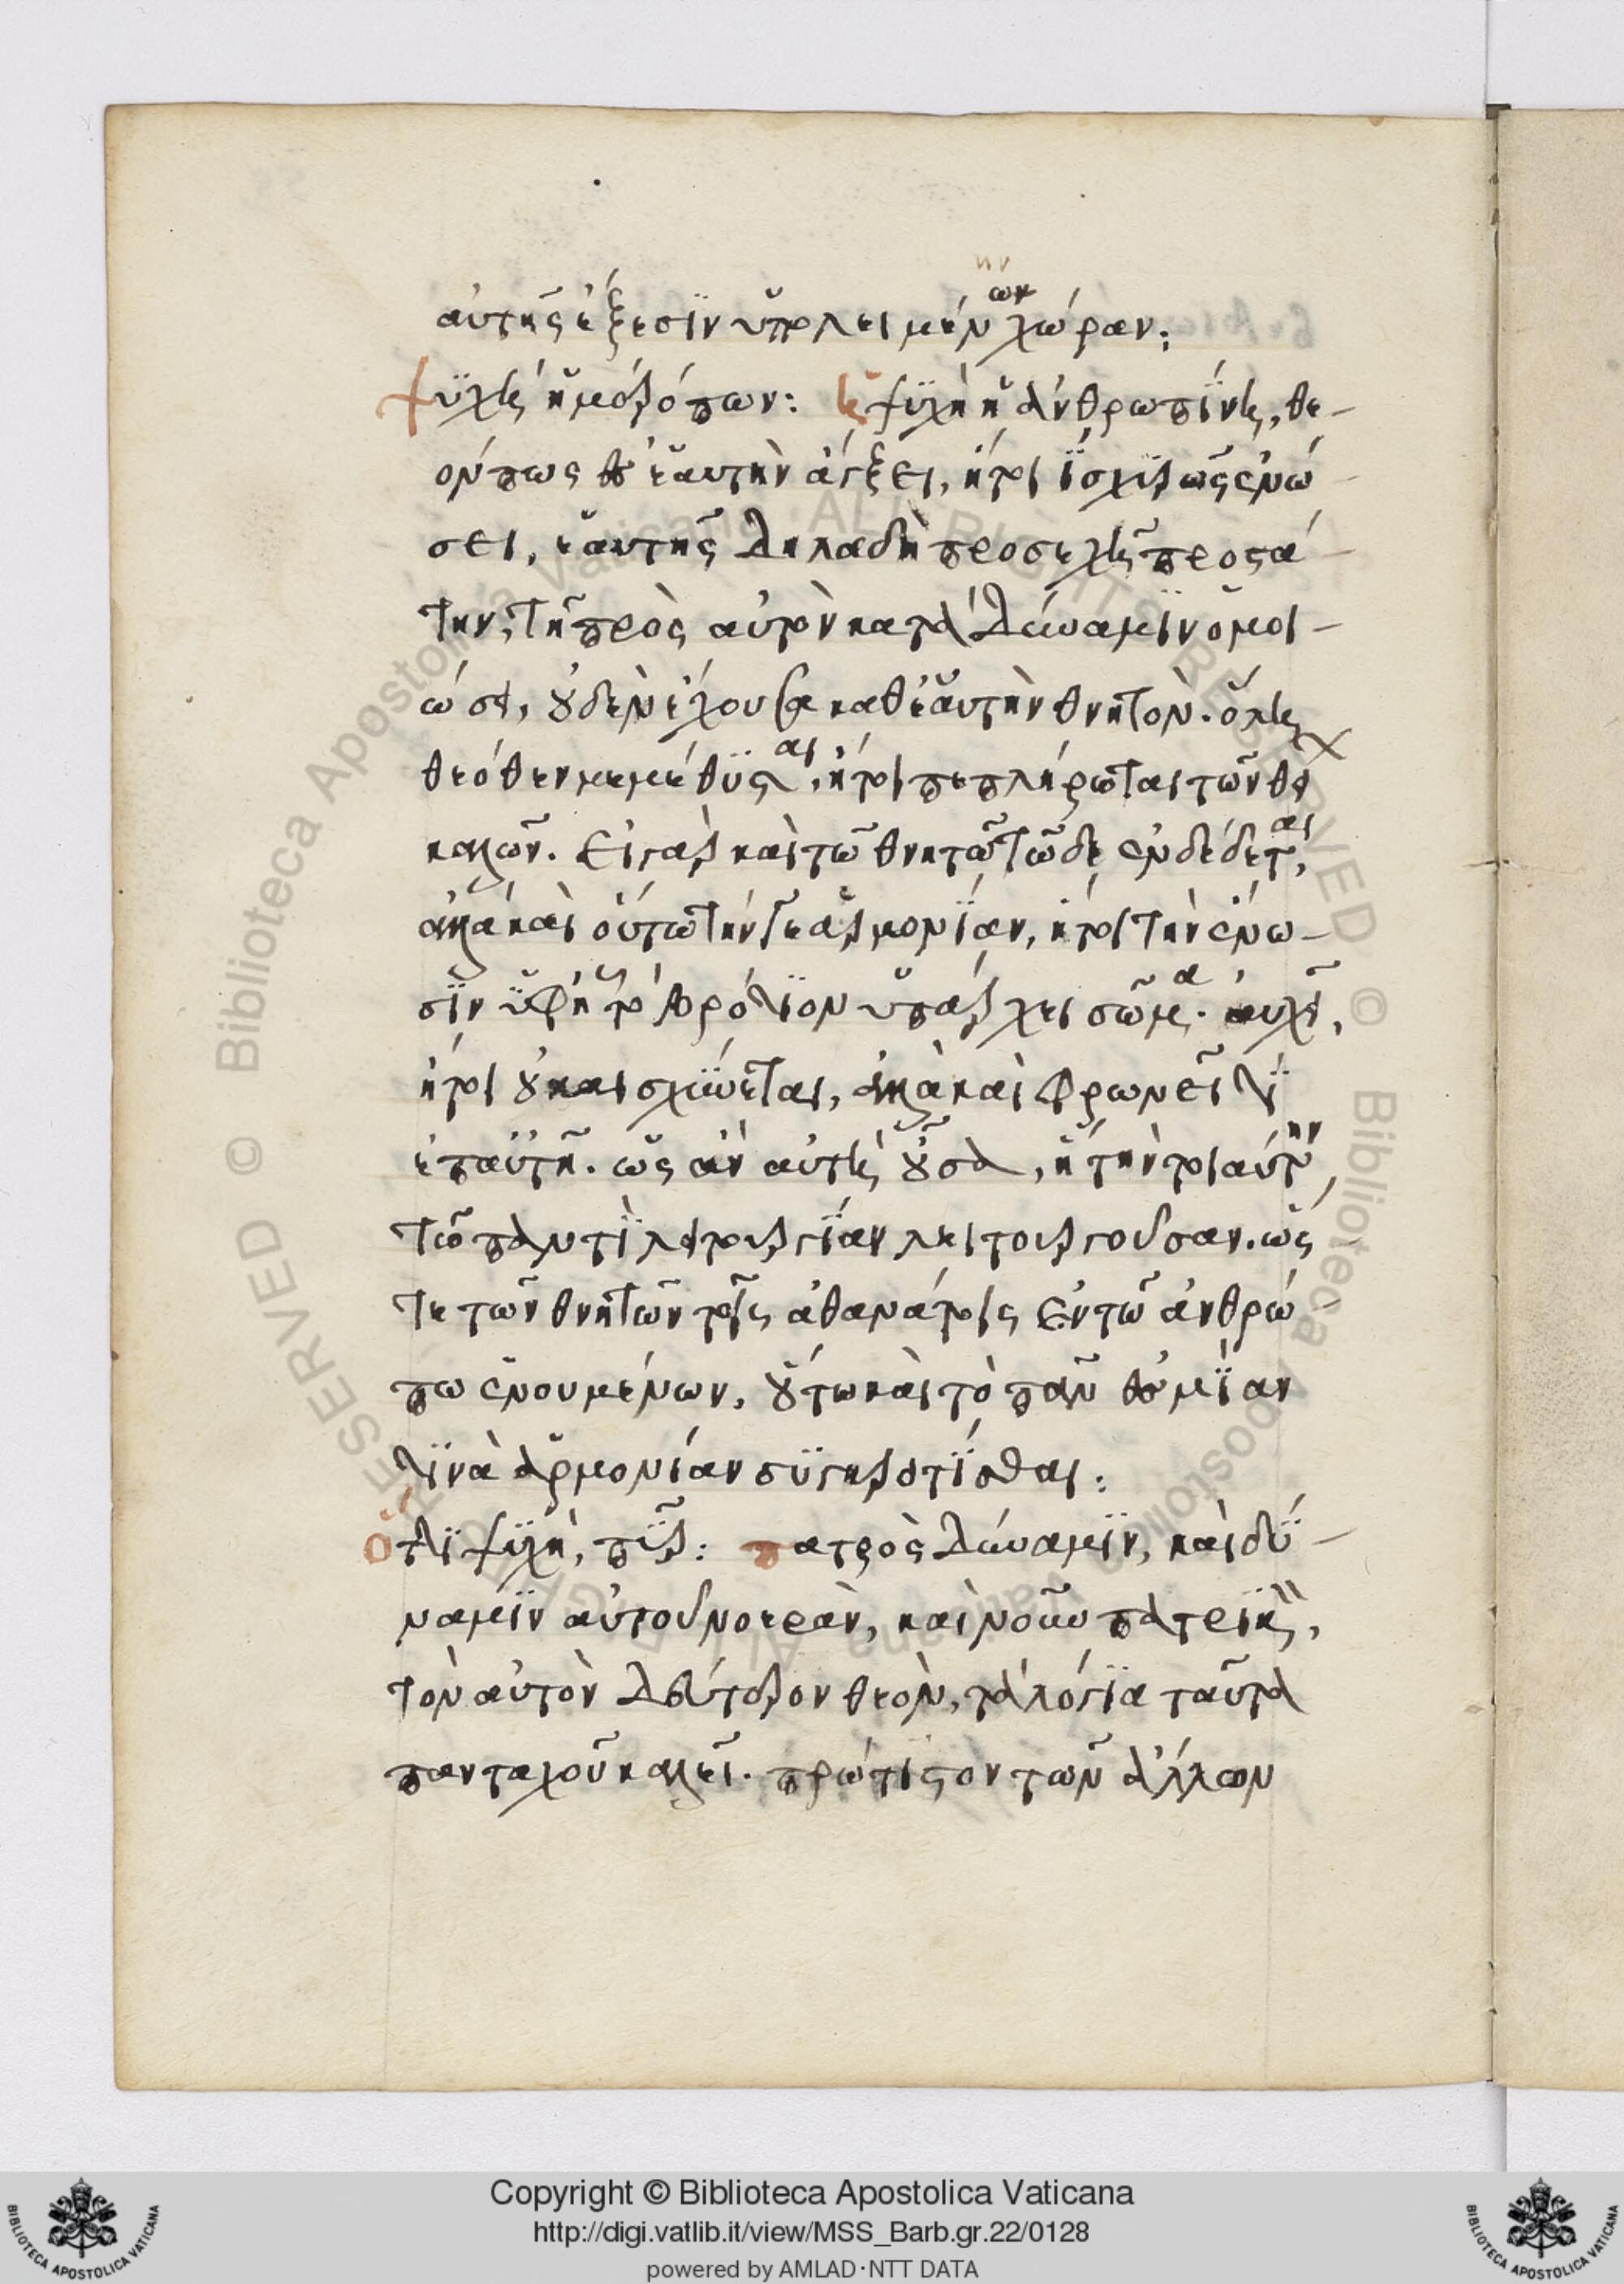 αὐτῆς ἕξεσϊν ὑπολειμένων χώραν:
ψϋχὴ ἡ μερόπων: ἡ ψϋχὴ ἡ ἀνθρωπΐνη, θε-
όν πως εἰς ἑαυτὴν ἄγξει, ἤτοι ἰσχϋρῶς ἑνώ-
σει, ἑαυτῆς δηλαδὴ προσεχῆ προστά-
την, τῆ πρὸς αὐτὸν κατὰ δύναμϊν ὁμοι-
ώσει, οὐδὲν ἔχουσα καθ' ἑαυτὴν θνητὸν. ὅλη
θεόθεν μεμέθϋσται, ἤτοι πεπλήρωται τῶν θεί
καλῶν. εἰ γὰρ καὶ τῶ θνητῶ τῶδε ἐνδέδεται,
ἀλλὰ καὶ οὕτω τήν γε ἁρμονΐαν, ἤτοι τὴν ἕνω-
σϊν ὑφ' ἧ τὸ βρότϊον ὑπάρχει σῶμα. αὐχεῖ,
ἤτοι οὐκ αισχΰνεται, ἀλλὰ καὶ φρωνεῖ τϊ
ἐπ' αὐτῆ. ὡς ἂν αὐτὴ οὖσα, ἡ τὴν τοιαύτην
τῶ παντῒ λειτουργΐαν λειτουργοῦσαν. ὥς
τε τῶν θνητῶν τοῖς ἀθανάτοις ἐν τῶ ἀνθρώ-
πω ἑνουμένων, οὕτω καὶ τὸ πᾶν εἰς μΐαν
τϊνὰ ἁρμονίαν συγκροτΐσθαι:
ὅτϊ ψϋχὴ, πῦρ: πατρὸς δύναμϊν, καὶ δύ-
ναμϊν αὐτοῦ νοερὰν, καὶ νοῦν πατρϊκὸν,
τὸν αὐτὸν δεύτερον θεὸν, τὰ λόγϊα ταῦτα
πανταχοῦ καλεῖ. πρώτιστον τῶν ἄλλων
Copyright © Biblioteca Apostolica Vaticana
http://digi.vatlib.it/view/MSS_Barb.gr.22/0128
powered by AMLAD·NTT DATA